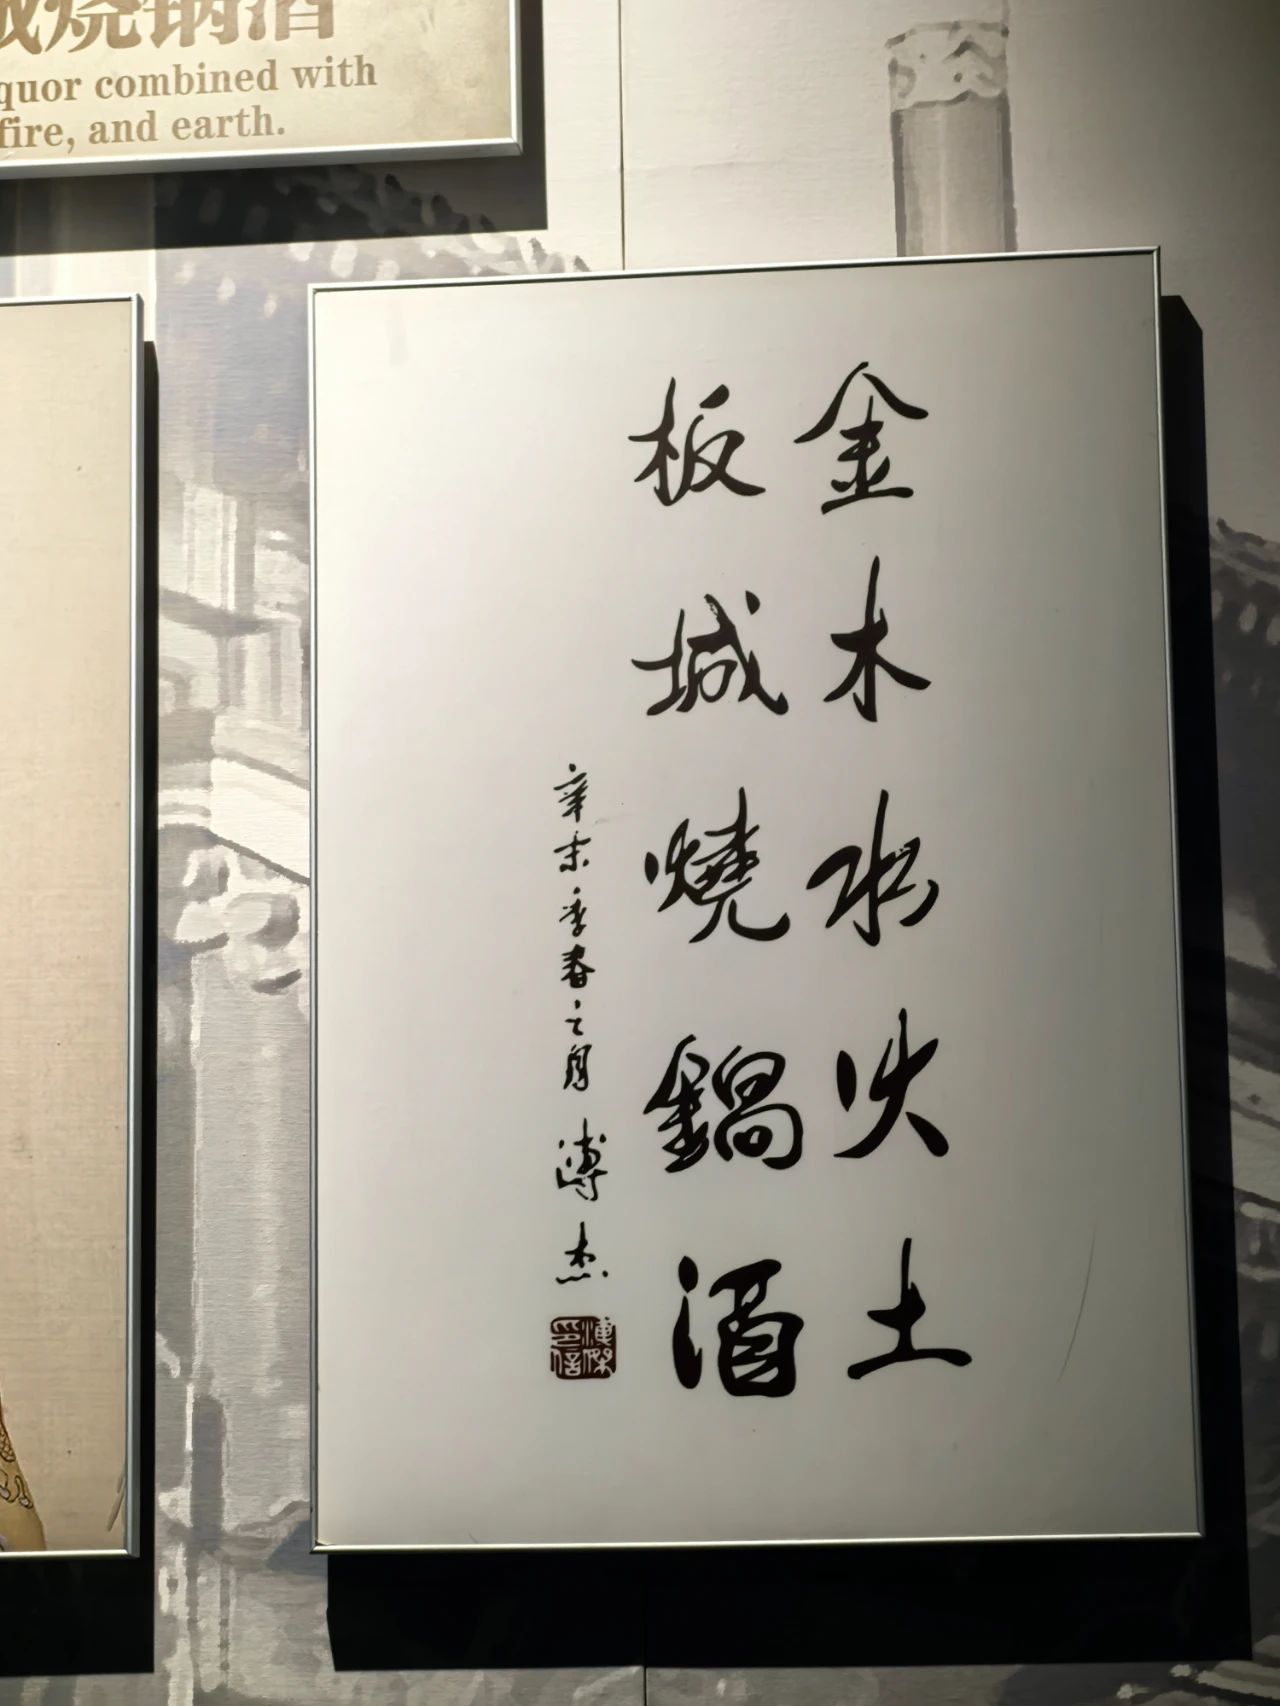 城烧锅酒
quor combined with
fire, and earth.
金木水火土
板城燒鍋酒
辛未季春之月 溥杰
溥傑
印信